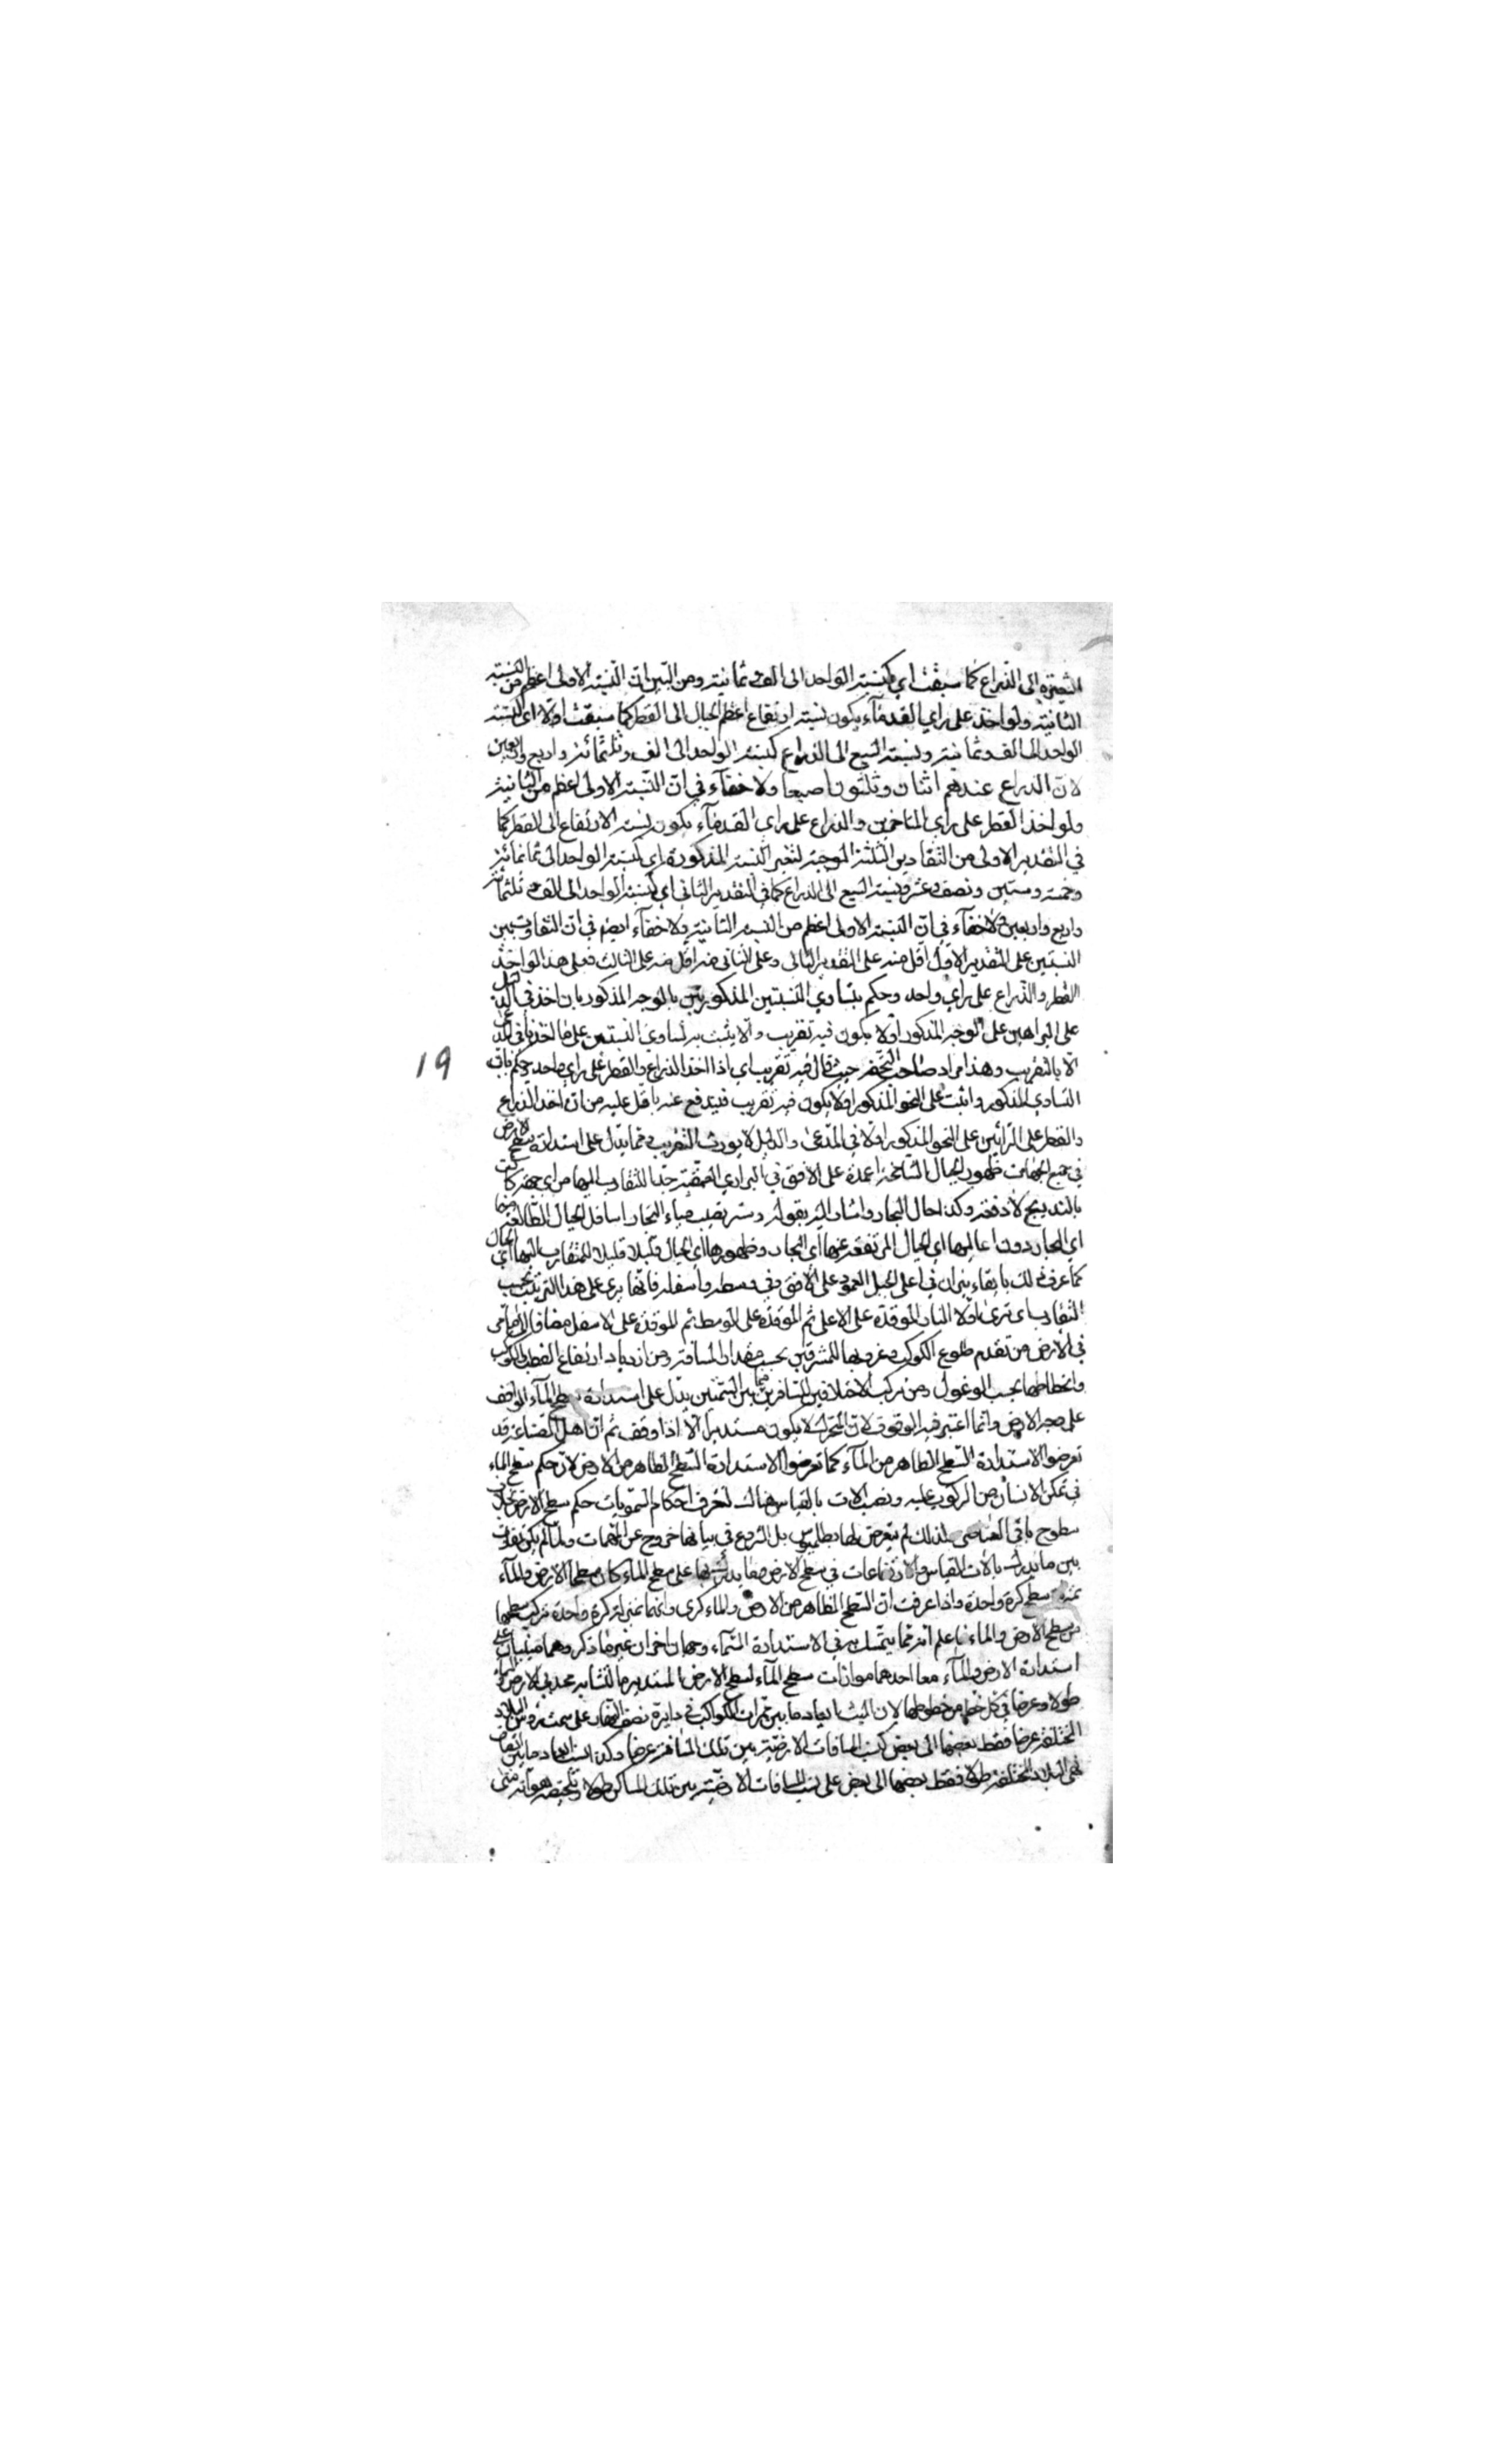 الشعيرة الى الذراع كما سبقت اي كنسبة الواحد الى الف وثمانية ومن البين ان النسبة الاولى اعظم من النسبة
الثانية ولو اخذ على راي القدمآء يكون نسبة ارتفاع اعظم الجبال الى القطر كما سبقت اولا اي كنسبة
الواحد الى الف وثمانية ونسبة السبع الى الذراع كنسبة الواحد الى الف وثلثمائة واربع واربعين
لان الذراع عندهم اثنان وثلثون اصبعا ولا خفآء في ان النسبة الاولى اعظم من الثانية
ولو اخذ القطر على راي المتاخرين والذراع على راي القدمآء يكون نسبة الارتفاع الى القطر كما
في التقدير الاولى من التقادير الثلثة الموجبة لتغير النسبة المذكورة اي كنسبة الواحد الى ثمانمائة
وخمسة وستين ونصف عشر ونسبة السبع الى الذراع كما في التقدير الثاني اي كنسبة الواحد الى الف وثلثمائة
واربع واربعين ولا خفآء في ان النسبة الاولى اعظم من النسبة الثانية ولا خفآء ايضا في ان التفاوت بين
النسبتين على التقدير الاول اقل منه على التقدير الثاني وعلى الثاني منه اقل منه على الثالث فعلى هذا لو اخذ
القطر والذراع على راي واحد وحكم بتساوي النسبتين المذكورتين بالوجه المذكور بان اخذ في
على البراهين على الوجه المذكور اولا يكون فيه تقريب والا يثبت به تساوي النسبتين على ما
الا بالتقريب وهذا مراد صاحب التحفة حيث قال فيه تقريب اي اذا اخذ الذراع والقطر على راي واحد وحكم بان
التساوي المذكور واثبت على النحو المذكور اولا يكون فيه تقريب فيندفع عنه ما قيل عليه من انه اخذ الذراع
والقطر على الرائين على النحو المذكور اولا في المدعى والدليل لا يورث التقريب ومما يدل على استدارة سطح الارض
في جميع الجهات ظهور الجبال الشامخة اعمدة على الافق في البراري جدا للتقارب اليها من اي جهة كانت
بالتدريج لا دفعة وكذا حال البحار واشار اليه بقوله وستر تحديب مياه البحار اسافل الجبال الطالعة
اي البحار دون اعاليها اي الجبال المرتفعة عنها اي البحار وظهورها اي الجبال قليلا قليلا للمتقارب اليها اي الجبال
كما عرف ذلك بايقاد نيران في اعلى الجبل العمود على الافق وفي وسطه واسفله فانها يرى على هذا الترتيب بحسب
التقارب اي ترى اولا النار الموقدة على الاعلى ثم الموقدة على الوسط ثم الموقدة على الاسفل مضافا الى ما مر
في الارض من تقدم طلوع الكواكب وغروبها للمشرقين بحسب مقدار المسافة ومن ازدياد ارتفاع القطب والكواكب
وانحطاطها بحسب الوغول ومن تركب الاختلافين للسائرين فيما بين السمتين يدل على استدارة سطح المآء الواقف
على وجه الارض وانما اعتبر فيه الوقوف لان المتحرك لا يكون مستديرا الا اذا وقف ثم ان اهل الصناعة قد
تعرضوا لاستدارة السطح الظاهر من المآء كما تعرضوا لاستدارة السطح الظاهر من الارض لان حكم سطح الماء
في تمكن الانسان من الركوب عليه ونصب الالات بالقياس هناك لتعرف احكام السمويات حكم سطح الارض بخلاف
سطوح باقي العناصر لذلك لم يتعرض لها بطلميوس بل الشروع في بيانها خروج عن المهمات ولما لم يكن تفاوت
بين ما يدرك بالات القياس والارتفاعات في سطح الارض وما يدرك بها على سطح الماء كان سطحا الارض والمآء
بمنزلة سطح كرة واحدة واذا عرفت ان السطح الظاهر من الارض والماء كري وانهما بمنزلة كرة واحدة مركب سطحها
من سطح الارض والماء فاعلم انه مما يتمسك به في الاستدارة السمآء وجهان اخران غير ما ذكر وهما مبنيان على
استدارة الارض والمآء معا احدهما موازات سطح المآء لسطح الارض المستدير ما لتشابه محدبي الارض والمآء
طولا وعرضا في كل خط من خطوطها لان ابعاد ما بين ممرات الكواكب في دايرة نصف النهار على سمت رؤس البلاد
المختلفة عرضا فقط بعضها الى بعض كنسب المسافات الارضية بين تلك المسافة عرضا وكذا نسب ابعاد ما بين
في البلاد المختلفة طولا فقط بعضها الى بعض على نسب المسافات الارضية بين تلك المساكن طولا وتلخيصه هو انه متى
١٩